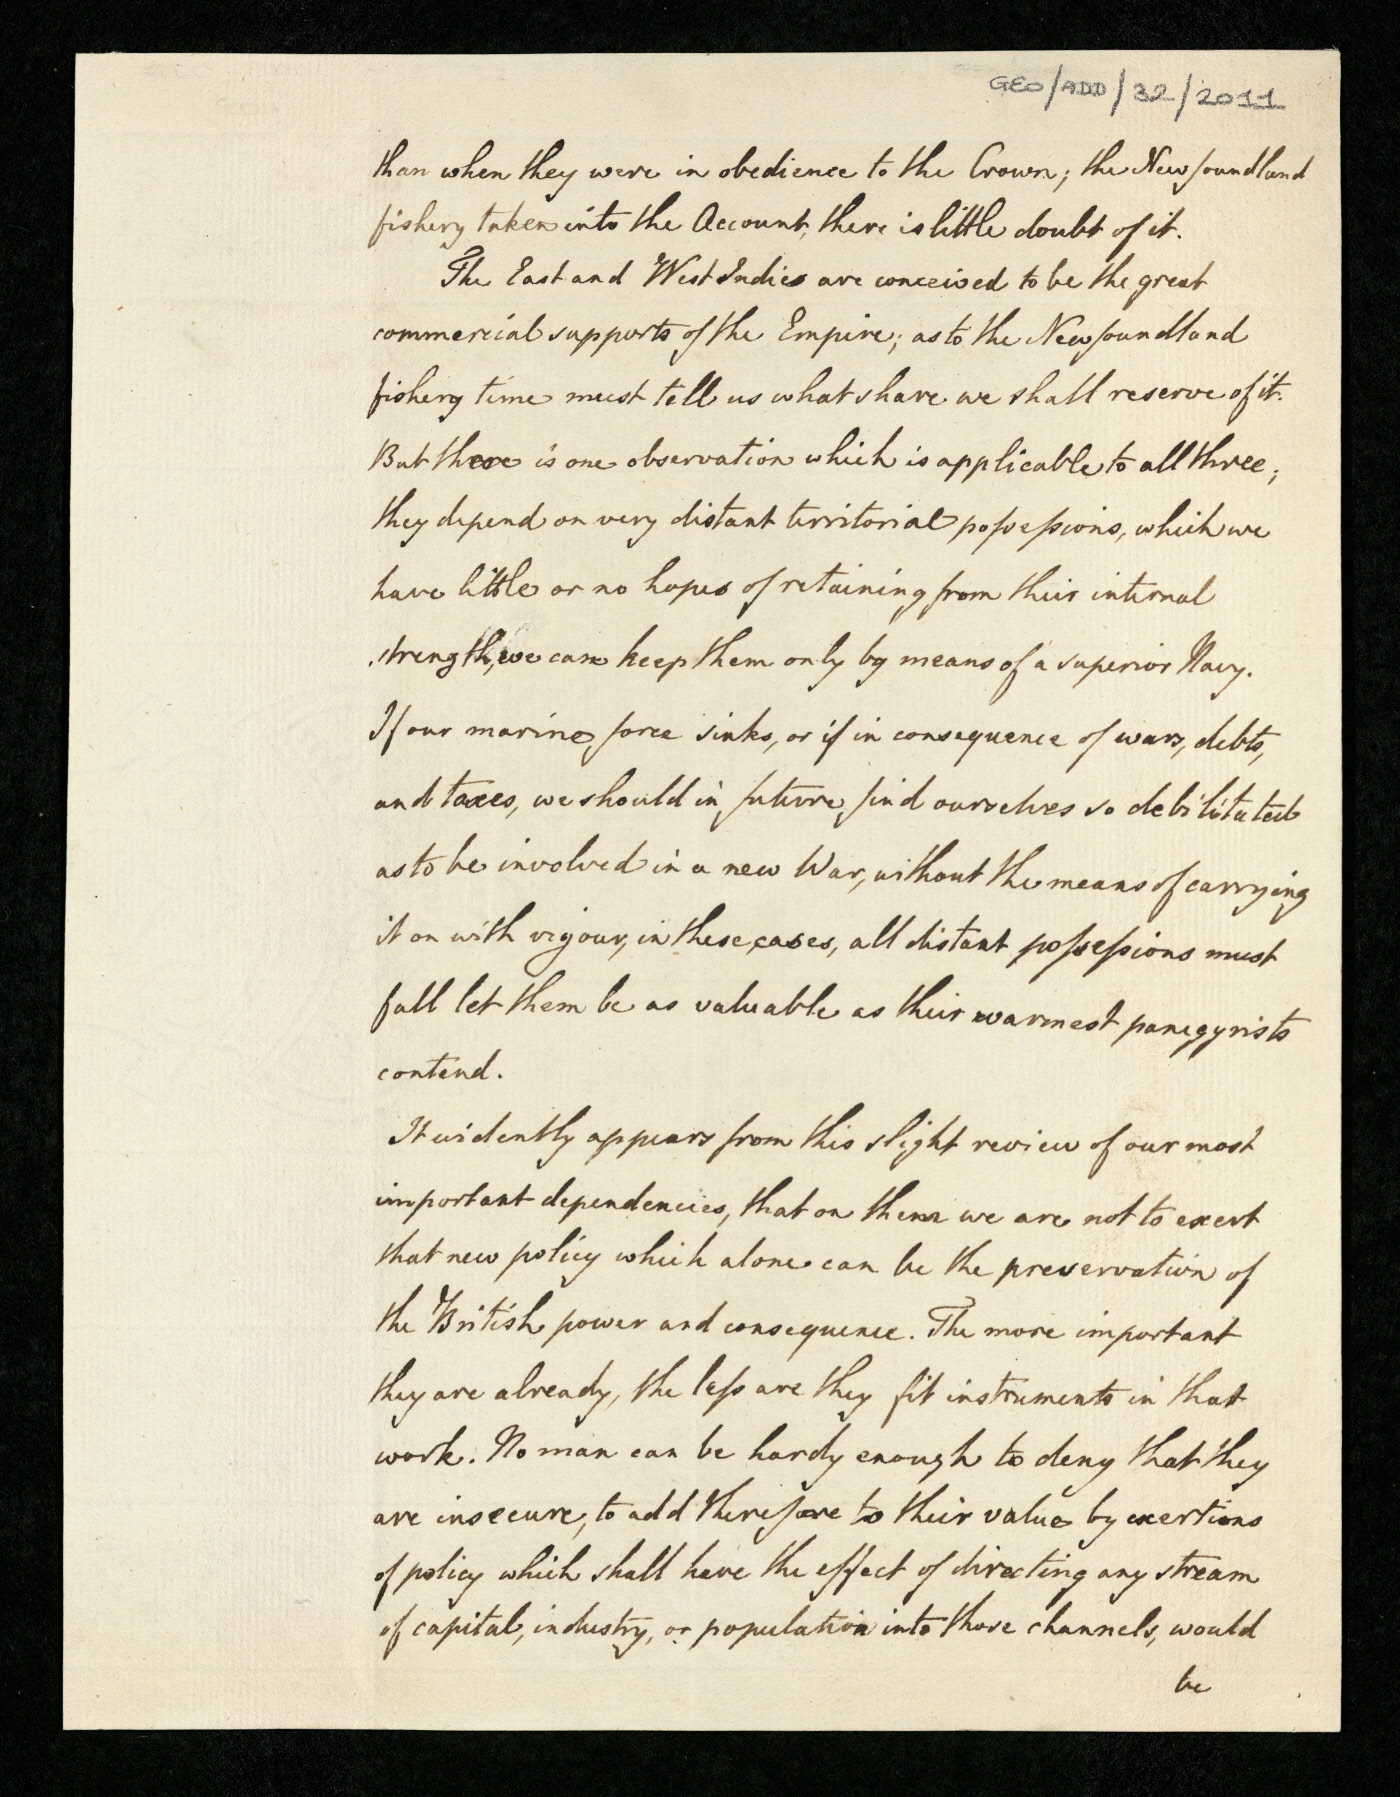 GEO/ADD/32/2011
than when they were in obedience to the Crown; the Newfoundland
fishery taken into the Account, there is little doubt of it.
The East and West Indies are conceived to be the great
commercial supports of the Empire; as to the Newfoundland
fishery time must tell us what share we shall reserve of it.
But there is one observation which is applicable to all three;
they depend on very distant territorial poſseſsions, which we
have little or no hopes of retaining from their internal
strength, we can keep them only by means of a superior Navy.
If our marine force sinks, or if in consequence of wars, debts,
and taxes, we should in future find ourselves so debilitated
as to be involved in a new War, without the means of carrying
it on with vigour, in these cases, all distant poſseſsions must
fall let them be as valuable as their warmest panegyrists
contend.
It evidently appears from this slight review of our most
important dependencies, that on them we are not to exert
that new policy which alone can be the preservation of
the British power and consequence. The more important
they are already, the leſs are they fit instruments in that
work. No man can be hardy enough to deny that they
are insecure, to add therefore to their value by exertions
of policy which shall have the effect of directing any stream
of capital, industry, or population into those channels, would
be